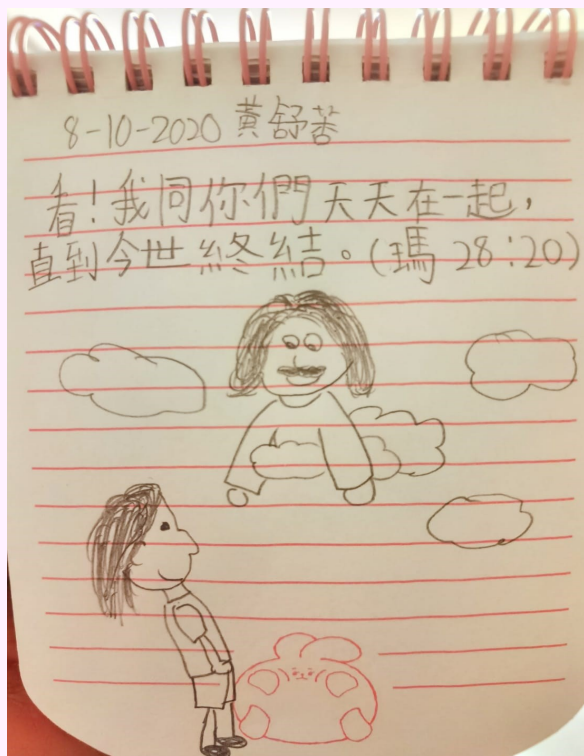 8-10-2020 黃舒苦
看!我同你們天天在一起,
直到今世終結。(瑪 28:20)